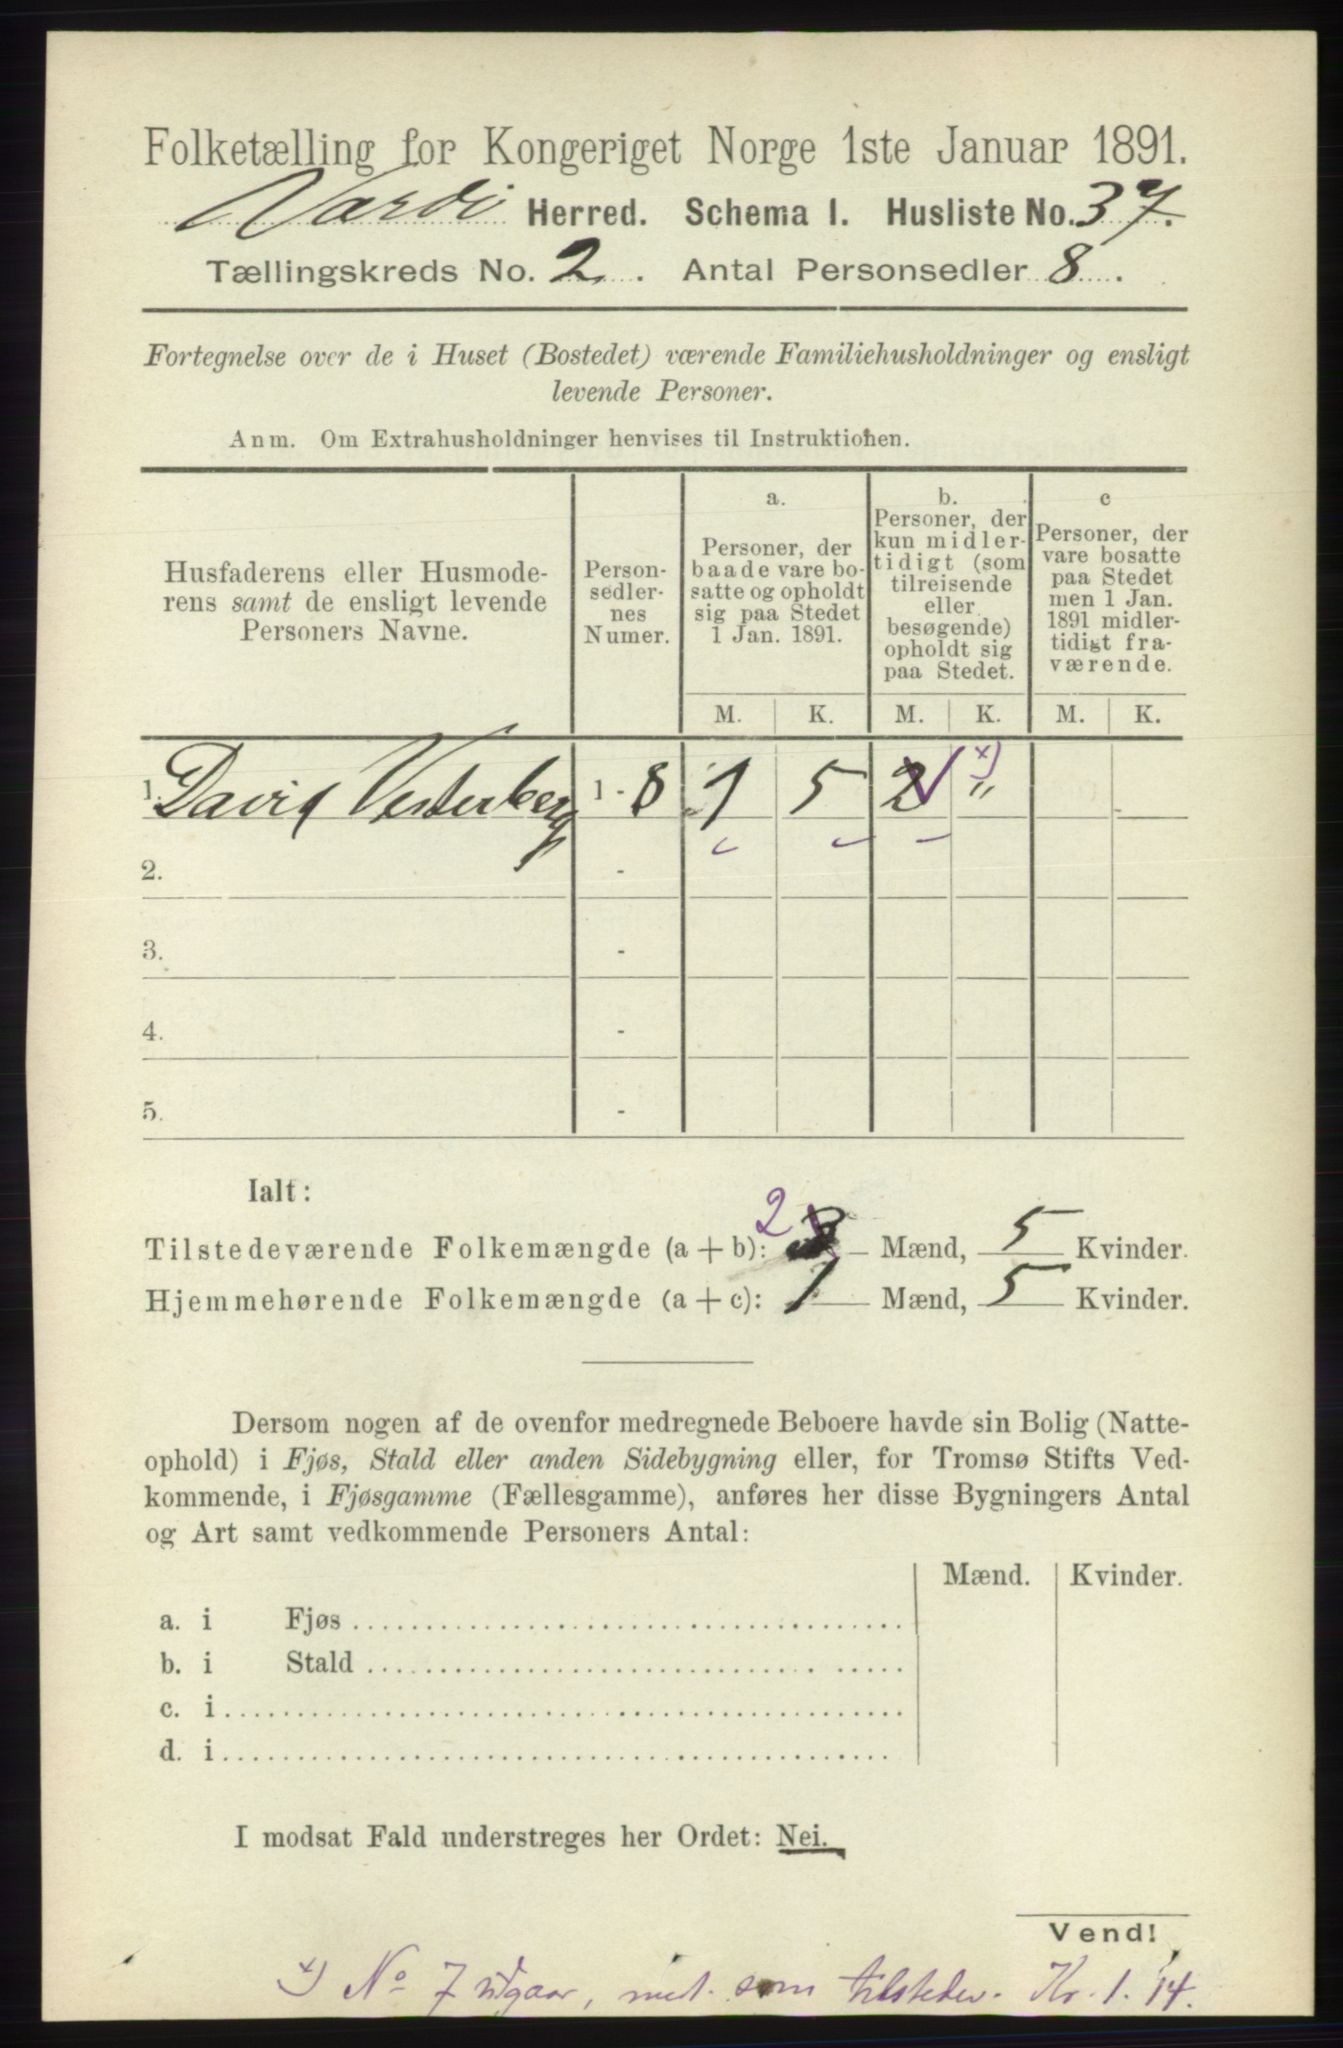 Folketælling for Kongeriget Norge 1ste Januar 1891.
Vardö Herred. Schema I. Husliste No. 37.
Tællingskreds No. 2. Antal Personsedler 8.
Fortegnelse over de i Huset (Bostedet) værende Familiehusholdninger og ensligt
levende Personer.
Anm. Om Extrahusholdninger henvises til Instruktionen.
Husfaderens eller Husmode-
rens samt de ensligt levende
Personers Navne.
Person-
sedler-
nes
Numer.
a.
Personer, der
baade vare bo-
satte og opholdt
sig paa Stedet
1 Jan. 1891.
b.
Personer, der
kun midler-
tidigt (som
tilreisende
eller
besøgende)
opholdt sig
paa Stedet.
c
Personer, der
vare bosatte
paa Stedet
men 1 Jan.
1891 midler-
tidigt fra-
værende.
M. K. M. K. M. K.
1. David Vesterberg 1 - 8 1 5 2 x) "
2. -
3. -
4. -
5. -
Ialt:
Tilstedeværende Folkemængde (a + b): 2 3 Mænd, 5 Kvinder.
Hjemmehørende Folkemængde (a + c): 1 Mænd, 5 Kvinder.
Dersom nogen af de ovenfor medregnede Beboere havde sin Bolig (Natte-
ophold) i Fjøs, Stald eller anden Sidebygning eller, for Tromsø Stifts Ved-
kommende, i Fjøsgamme (Fællesgamme), anføres her disse Bygningers Antal
og Art samt vedkommende Personers Antal:
Mænd. Kvinder.
a. i Fjøs
b. i Stald
c. i
d. i
I modsat Fald understreges her Ordet: Nei.
Vend!
x) No 7 udgaar, medt. som tilstedev. Kr. 1. 14.